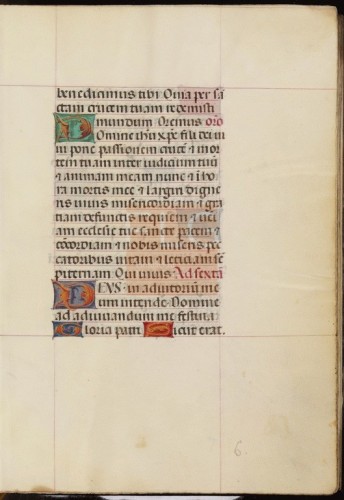 benedicimus tibi Quia per sā
ctam crucem tuam redemisti
mundum Oremus orō
Domine ihū xp̄e fili dei vi
ui pone passionem crucē & mor
tem tuam inter iudicium tuū
& animam meam nunc & ī ho
ra mortis mee & largiri digne
ris viuis misericordiam & gra
tiam defunctis requiem & ueni
am ecclesie tue sancte pacem &
cōcordiam & nobis miseris pec
catoribus uitam & leticiam sē
piternam Qui viuis Ad sextā
DEUS in adiutoriū me
um intende Domine
ad adiuuandum me festina
Gloria patri Sicut erat.
6.